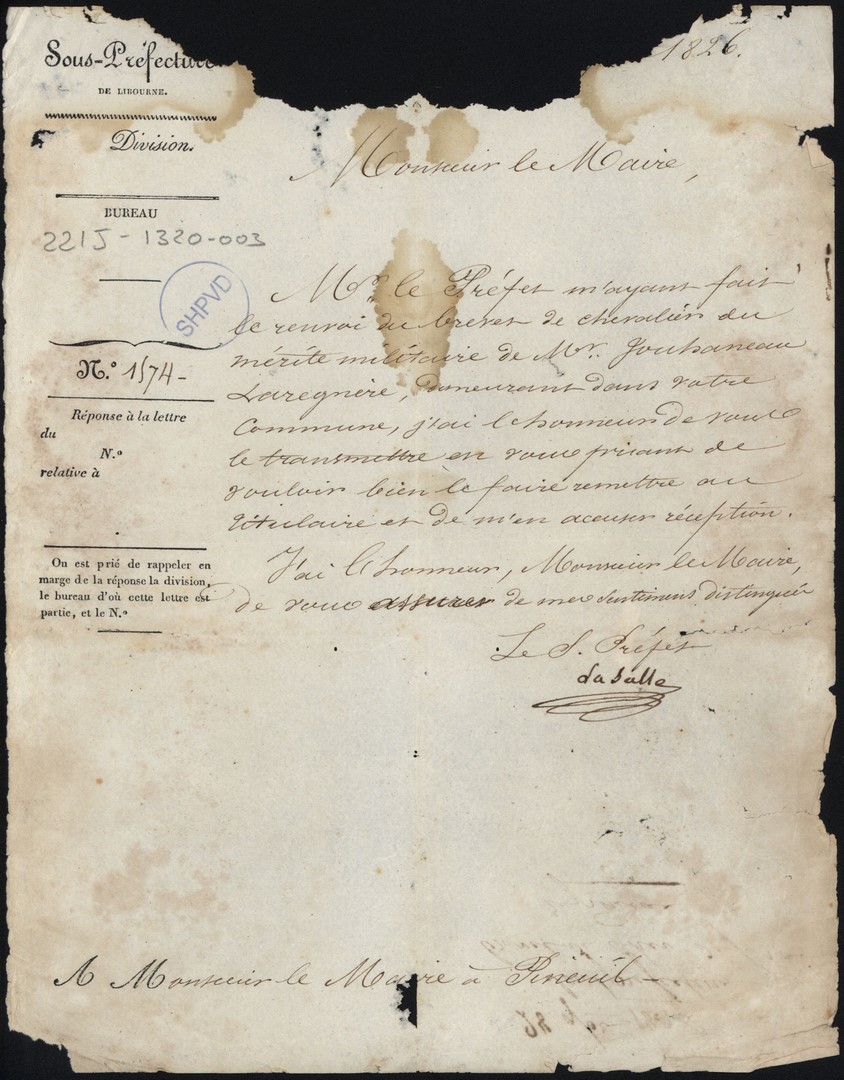 Sous-Préfecture
DE LIBOURNE.
1826.
Division.
BUREAU
22IJ - 1320-003
SHPVD
N.º 1574-
Réponse à la lettre
du
N.º
relative à
On est prié de rappeler en
marge de la réponse la division,
le bureau d'où cette lettre est
partie, et le N.º
Monsieur le Maire,
Mr. le Préfet m'ayant fait
le renvoi du brevet de chevalier du
mérite militaire de Mr. Jouhaneau
Laregnère, demeurant dans votre
Commune, j'ai l'honneur de vous
le transmettre en vous priant de
vouloir bien le faire remettre au
titulaire et de m'en accuser réception.
J'ai l'honneur, Monsieur le Maire,
de vous assurer de mes sentimens distingués
Le S. Préfet
LaSalle
A Monsieur le Maire à Pineuil